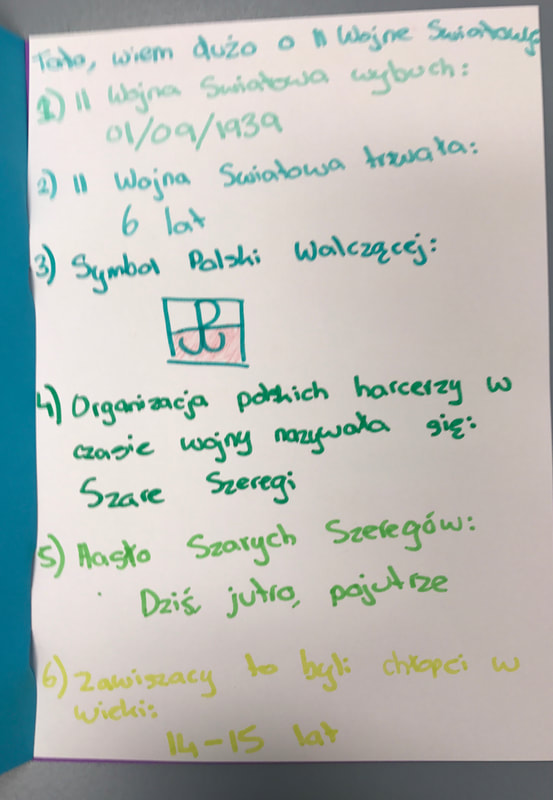 Tato, wiem dużo o II Wojne Swiatowej
1) II Wojna Swiatowa wybuch:
01/09/1939
2) II Wojna Swiatowa trwała:
6 lat
3) Symbol Polski Walczącej:
4) Organizacja polskich harcerzy w
czasie wojny nazywała się:
Szare Szeregi
5) Hasło Szarych Szeregów:
Dziś, jutro, pojutrze
6) Zawiszacy to byli chłopci w
wieki:
14-15 lat